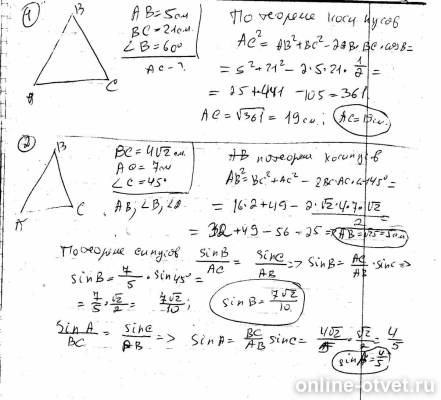 ①
B
A
C
AB=5см
BC=21см.
∠B=60°
AC-?
По теореме косинусов
AC²=AB²+BC²-2AB·BC·cosB=
=5²+21²-2·5·21·1/2=
=25+441-105=361
AC=√361=19см; AC=19см.
②
B
A
C
BC=4√2 см.
AC=7см
∠C=45°
AB, ∠B, ∠
AB по теореме косинусов
AB²=BC²+AC²-2BC·AC·cos45°=
=16·2+49-2·√2·4·7·√2/2
=32+49-56=25= AB=√25=5см
По теореме синусов sinB/AC=sinC/AB=>sinB=AC/AB·sinC=>
sinB=7/5·sin45°=
=7/5·√2/2=7√2/10; sinB=7√2/10
sinA/BC=sinC/AB=>sinA=BC/AB sinC=4√2/5·√2/2=4/5
sinA=4/5
online-otvet.ru